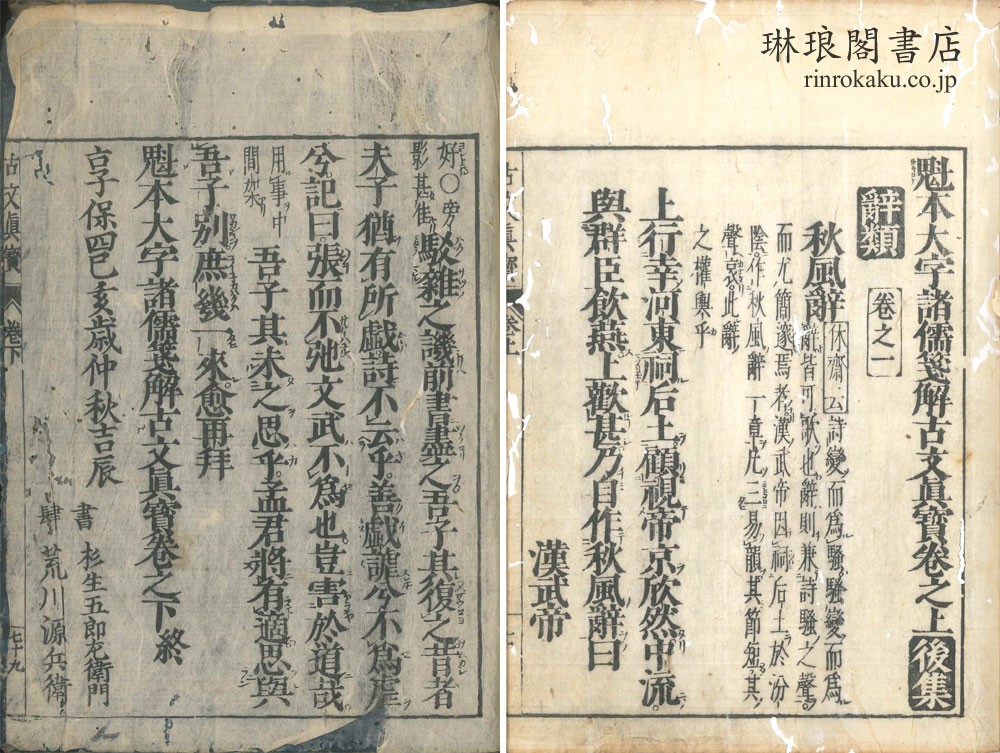 琳琅閣書店
rinrokaku.co.jp
魁本大字諸儒箋解古文眞寶卷之上 後集
辭類 卷之一
秋風辭 休齋云詩變而爲騷騷變而爲
辭皆可歌也辭則兼詩騷之聲
而尤簡邃焉者漢武帝因祠后土於汾
陰作秋風辭一章凡三易韻其節短其
聲哀此辭
之權輿乎
漢武帝
上行幸河東祠后土顧視帝京欣然中流
與群臣飲燕上歡甚乃自作秋風辭曰
好○旁
影甚佳
駁雜之譏前書盡之吾子其復之昔者
夫子猶有所戲詩不云乎善戲謔兮不爲虐
兮記曰張而不弛文武不爲也豈害於道哉
用事中
間架
吾子其未之思乎孟君將有適思與
吾子別庶幾一來愈再拜
魁本大字諸儒箋解古文眞寶卷之下終
享保四己亥歲仲秋吉辰
書 杉生五郎左衛門
肆 荒川源兵衛
古文眞寶 卷下
七十九